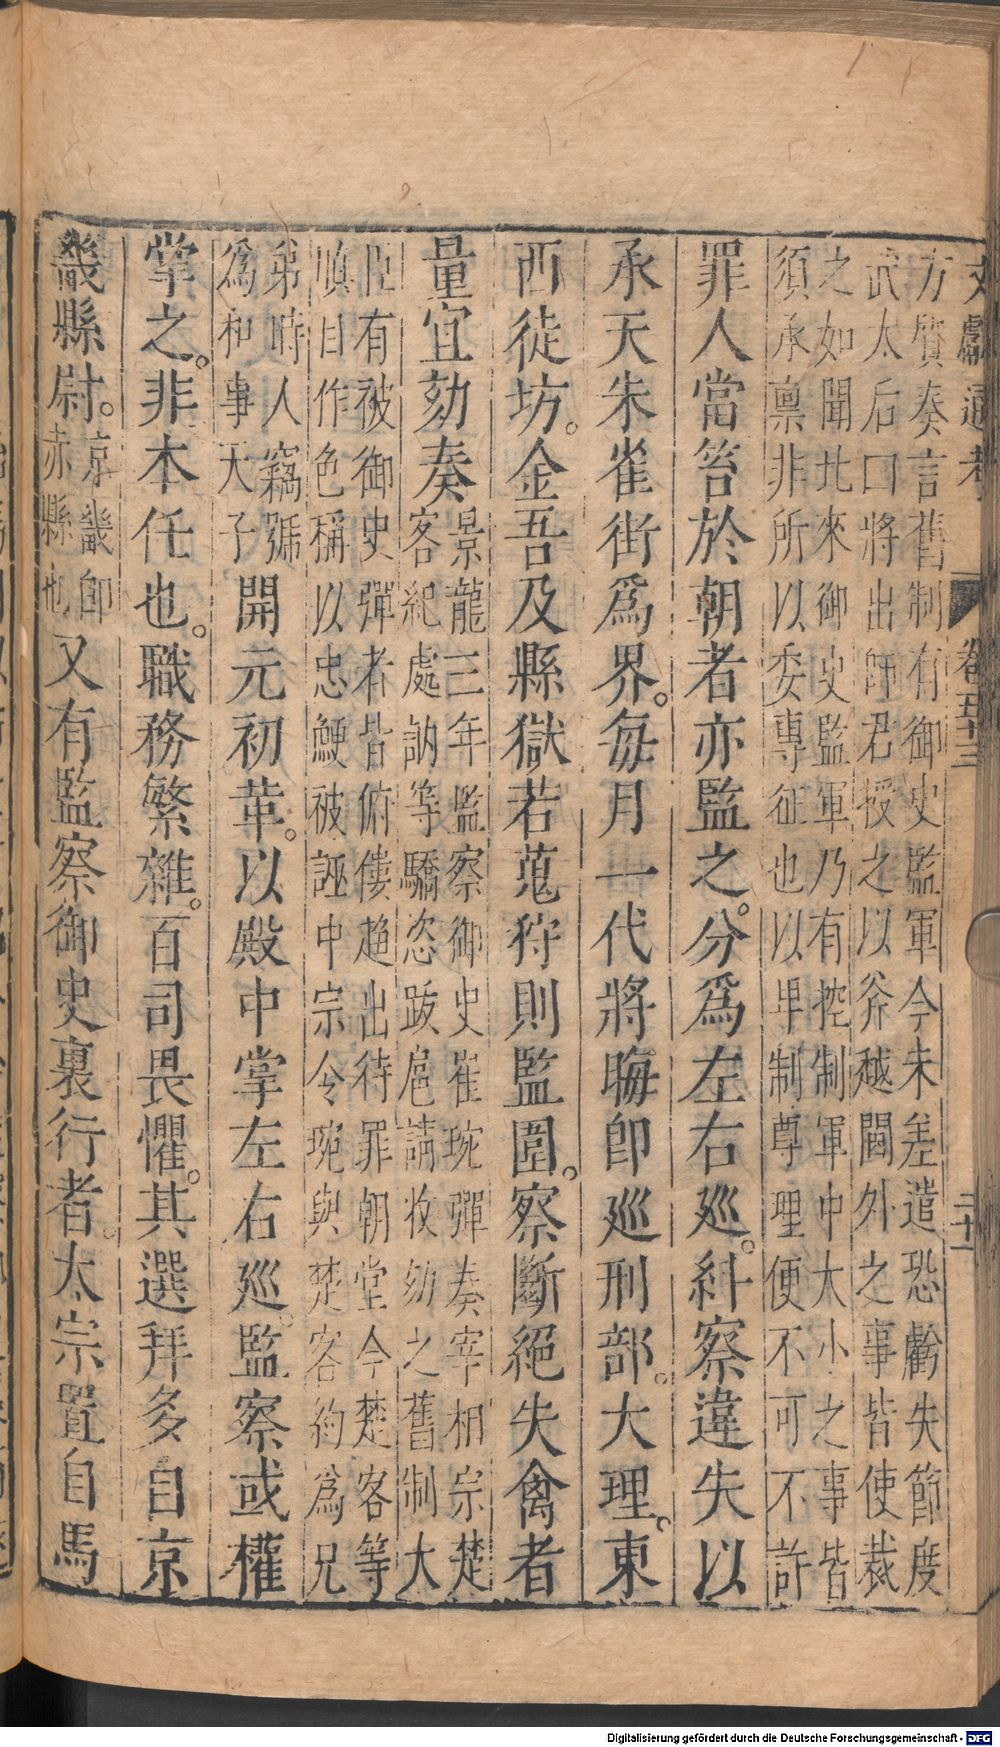 文獻通考 卷五十三 二十一
方質奏言舊制有御史監軍今未差遣恐虧失節度
武太后曰將出師君授之以斧越閫外之事皆使裁
之如聞比來御史監軍乃有控制軍中大小之事皆
須承禀非所以委專征也以卑制尊理便不可不許
罪人當笞於朝者亦監之。分爲左右廵。糾察違失以
承天朱雀街爲界。每月一代將晦即廵刑部。大理。東
西徒坊。金吾及縣獄若蒐狩則監圍。察斷絕失禽者
量宜劾奏
景龍三年監察御史崔琬彈奏宰相宗楚
客紀處訥等驕恣跋扈請收劾之舊制大
臣有被御史彈者皆俯僂趨出待罪朝堂今楚客等
嗔目作色稱以忠鯁被誣中宗令琬與楚客約爲兄
弟時人竊號
爲和事天子
開元初革。以殿中掌左右廵。監察或權
掌之。非本任也。職務繁雜。百司畏懼。其選拜多自京
畿縣尉。
京畿即
赤縣也
又有監察御史裏行者。太宗置自馬
Digitalisierung gefördert durch die Deutsche Forschungsgemeinschaft - DFG